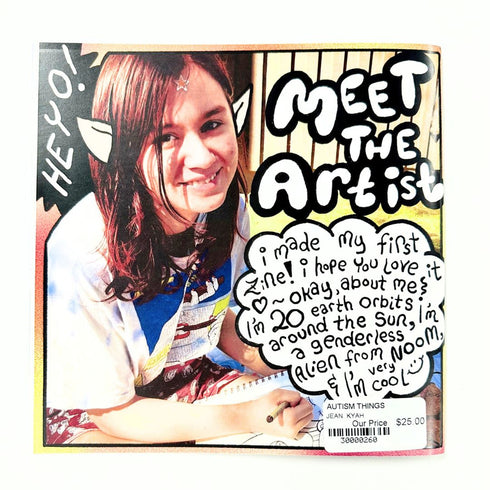 HEYO!
MEET
THE
Artist
i made my first
zine! i hope you love it
♡~ okay, about me:
i'm 20 earth orbits
around the sun, i'm
a genderless
Alien from NOOM,
& i'm very cool
AUTISM THINGS
JEAN KYAH
Our Price $25.00
30000260